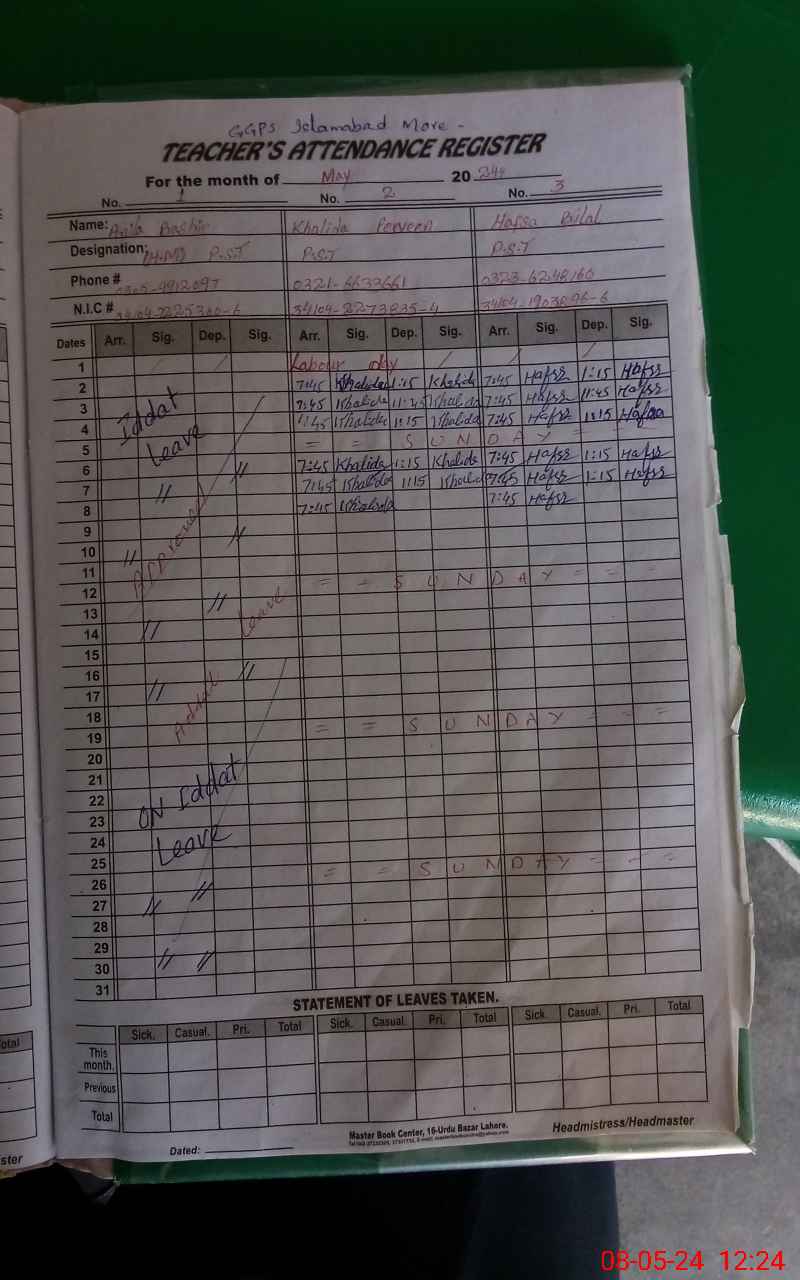 GGPS Islamabad More -
TEACHER'S ATTENDANCE REGISTER
For the month of May 20 24
No. 1 No. 2 No. 3
Name: Anila Bashir Khalida Perveen Hafsa Bilal
Designation: (H.M) P.S.T P.S.T P.S.T
Phone # 0305-4912097 0321-6633661 0323-6248160
N.I.C # 34104-2225300-6 34104-2273835-4 34104-1903896-6
Dates Arr. Sig. Dep. Sig. Arr. Sig. Dep. Sig. Arr. Sig. Dep. Sig.
1 Labour day
2 7:45 Khalida 1:15 Khalida 7:45 Hafsa 1:15 Hafsa
3 Iddat 7:45 Khalida 11:45 Khalida 7:45 Hafsa 11:45 Hafsa
4 Leave 7:45 Khalida 1:15 Khalida 7:45 Hafsa 1:15 Hafsa
5 = = S U N D A Y = - -
6 " 7:45 Khalida 1:15 Khalida 7:45 Hafsa 1:15 Hafsa
7 " 7:45 Khalida 1:15 Khalida 7:45 Hafsa 1:15 Hafsa
8 7:45 Khalida 7:45 Hafsa
9 Approved "
10 "
11
12 = = S U N D A Y = = -
13 " Leave
14 "
15
16 "
17 "
18 Iddat
19 = = S U N D A Y = - =
20
21
22 ON Iddat
23
24 Leave
25
26 " = = S U N D A Y = - =
27 "
28
29
30 " "
31
STATEMENT OF LEAVES TAKEN.
Sick. Casual. Pri. Total Sick. Casual. Pri. Total Sick. Casual. Pri. Total
This month.
Previous
Total
Master Book Center, 16-Urdu Bazar Lahore.
Dated: Headmistress/Headmaster
08-05-24 12:24